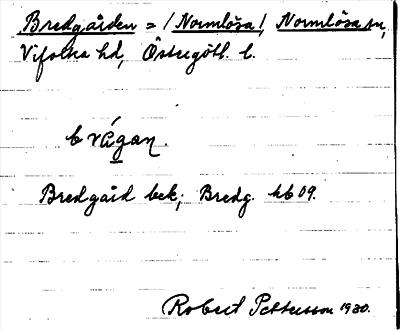 Bredgården = (Normlösa), Normlösa sn,
Vifolka hd, Östergötl. l.
Bredgård bek; Bredg. kb 09.
Robert Pettersson 1930.